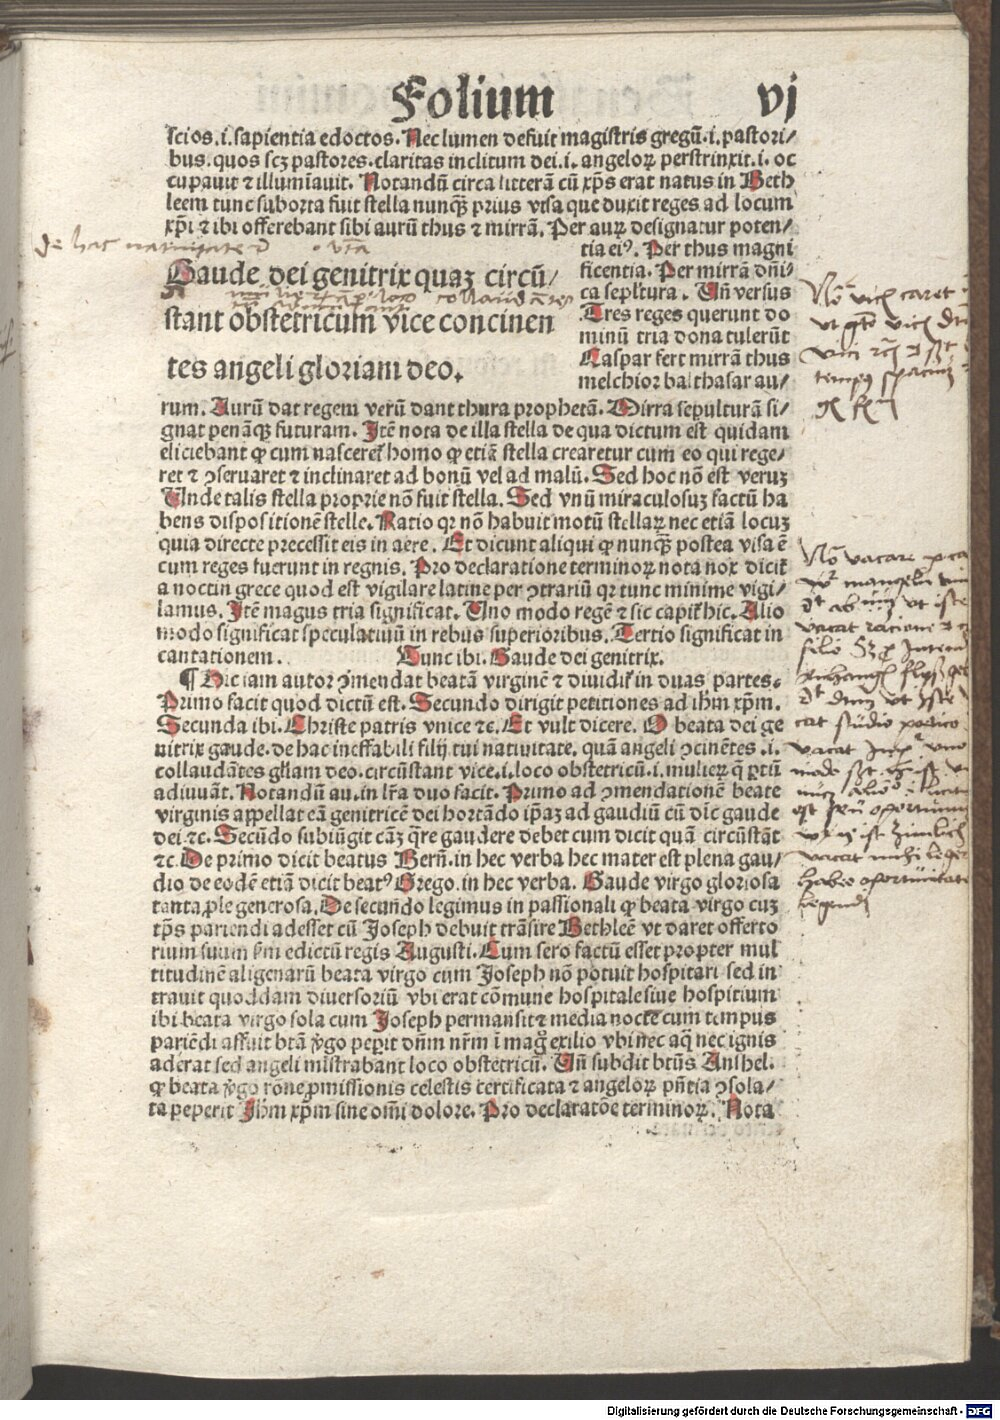 Folium vj
scios.i.sapientia edoctos. Nec lumen defuit magistris gregū.i.pastori/
bus.quos scꝫ pastores.claritas inclitum dei.i. angeloꝝ perstrinxit.i. oc
cupauit ⁊ illumīauit. Notandū circa litterā cū xp̄s erat natus in Beth
leem tunc suborta fuit stella nunqꝫ prius visa que duxit reges ad locum
xp̄i ⁊ ibi offerebant sibi aurū thus ⁊ mirrā. Per auꝝ designatur poten/
tia eiꝰ. Per thus magni
ficentia. Per mirrā dn̄i/
ca sepl'tura. Un̄ versus
Tres reges querunt do
minū tria dona tulerūt
Caspar fert mirrā thus
melchior balthasar au/
Gaude dei genitrix quaꝫ circū/
stant obstetricum vice concinen
tes angeli gloriam deo.
rum. Aurū dat regem verū dant thura prophetā. Mirra sepulturā si/
gnat penāqꝫ futuram. Itē nota de illa stella de qua dictum est quidam
eliciebant ꝙ cum nasceret' homo ꝙ etiā stella crearetur cum eo qui rege/
ret ⁊ ꝯseruaret ⁊ inclinaret ad bonū vel ad malū. Sed hoc nō est veruꝫ
Unde talis stella proprie nō fuit stella. Sed vnū miraculosuꝫ factū ha
bens dispositionē stelle. Ratio qꝛ nō habuit motū stellaꝝ nec etiā locuꝫ
quia directe precessit eis in aere. Et dicunt aliqui ꝙ nunqꝫ postea visa ē
cum reges fuerunt in regnis. Pro declaratione terminoꝝ nota nox dicit'
a noctin grece quod est vigilare latine per ꝯtrariū qꝛ tunc minime vigi/
lamus. Itē magus tria significat. Uno modo regē ⁊ sic capit' hic. Alio
modo significat speculatiuū in rebus superioribus. Tertio significat in
cantationem. Tunc ibi. Gaude dei genitrix.
¶ Hic iam autor ꝯmendat beatā virginē ⁊ diuidit' in duas partes.
Primo facit quod dictū est. Secundo dirigit petitiones ad ih̄m xp̄m.
Secunda ibi. Christe patris vnice ⁊c. Et vult dicere. O beata dei ge
nitrix gaude. de hac ineffabili filij tui natiuitate, quā angeli ꝯcinētes .i.
collaudātes gl'iam deo. circūstant vice.i.loco obstetricū.i. mulieꝝ q̄ ꝑtū
adiuuāt. Notandū au. in lr̄a duo facit. Primo ad ꝯmendationē beate
virginis appellat eā genitricē dei hortādo ip̄aꝫ ad gaudiū cū dic̄ gaude
dei ⁊c. Secūdo subiūgit cāꝫ q̄re gaudere debet cum dicit quā circūstāt
⁊c. De primo dicit beatus Bern̄. in hec verba hec mater est plena gau/
dio de eodē etiā dicit beatꝰ Grego. in hec verba. Gaude virgo gloriosa
tanta ꝓle generosa. De secundo legimus in passionali ꝙ beata virgo cuꝫ
tp̄s pariendi adesset cū Joseph debuit trāsire Bethleē vt daret offerto
rium suum s'm edictū regis Augusti. Cum sero factū esset propter mul
titudinē aligenarū beata virgo cum Joseph nō potuit hospitari sed in
trauit quoddam diuersoriū vbi erat cōmune hospitale siue hospitium
ibi beata virgo sola cum Joseph permansit ⁊ media nocte cum tempus
pariēdi affuit btā v̄go peperit dn̄m nr̄m ī mag' exilio vbi nec aq̄ nec ignis
aderat sed angeli mīstrabant loco obstetricū. Un̄ subdit btūs Anshel.
ꝙ beata v̄go rōne ꝓmissionis celestis certificata ⁊ angeloꝝ pn̄tia ꝯsola/
ta peperit Jh̄m xp̄m sine om̄i dolore. Pro declaratōe terminoꝝ. Nota
Digitalisierung gefördert durch die Deutsche Forschungsgemeinschaft - DFG